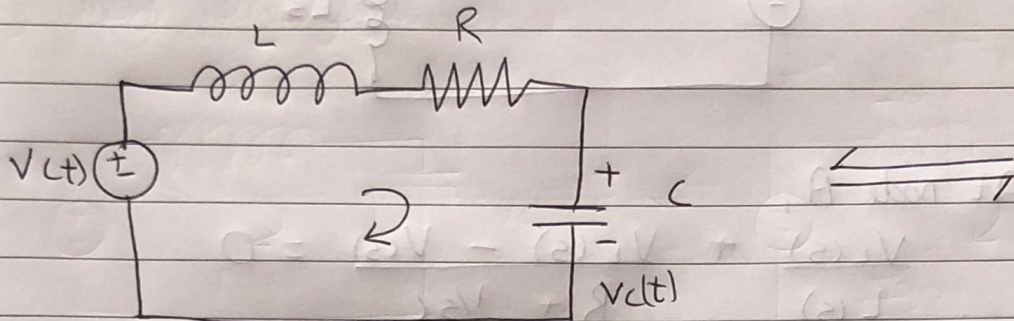 L R
V(t) ±
+ C
-
Vc(t)